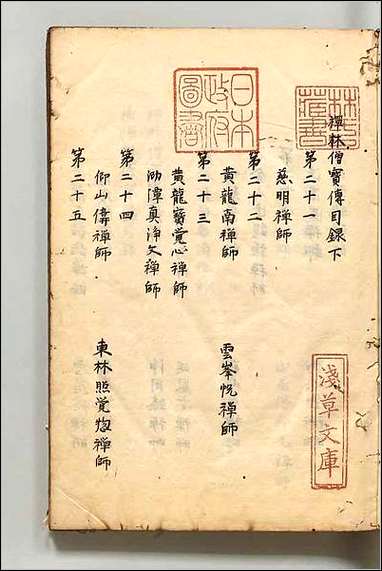 禪林僧寳傳目録下
第二十一
慈明禪師
第二十二
黄龍南禪師
雲峯悦禪師
第二十三
黄龍寳覚心禪師
泐潭真浄文禪師
第二十四
仰山偉禪師
東林照覚惣禪師
第二十五
日本
政府
圖書
林氏
蔵書
淺草文庫